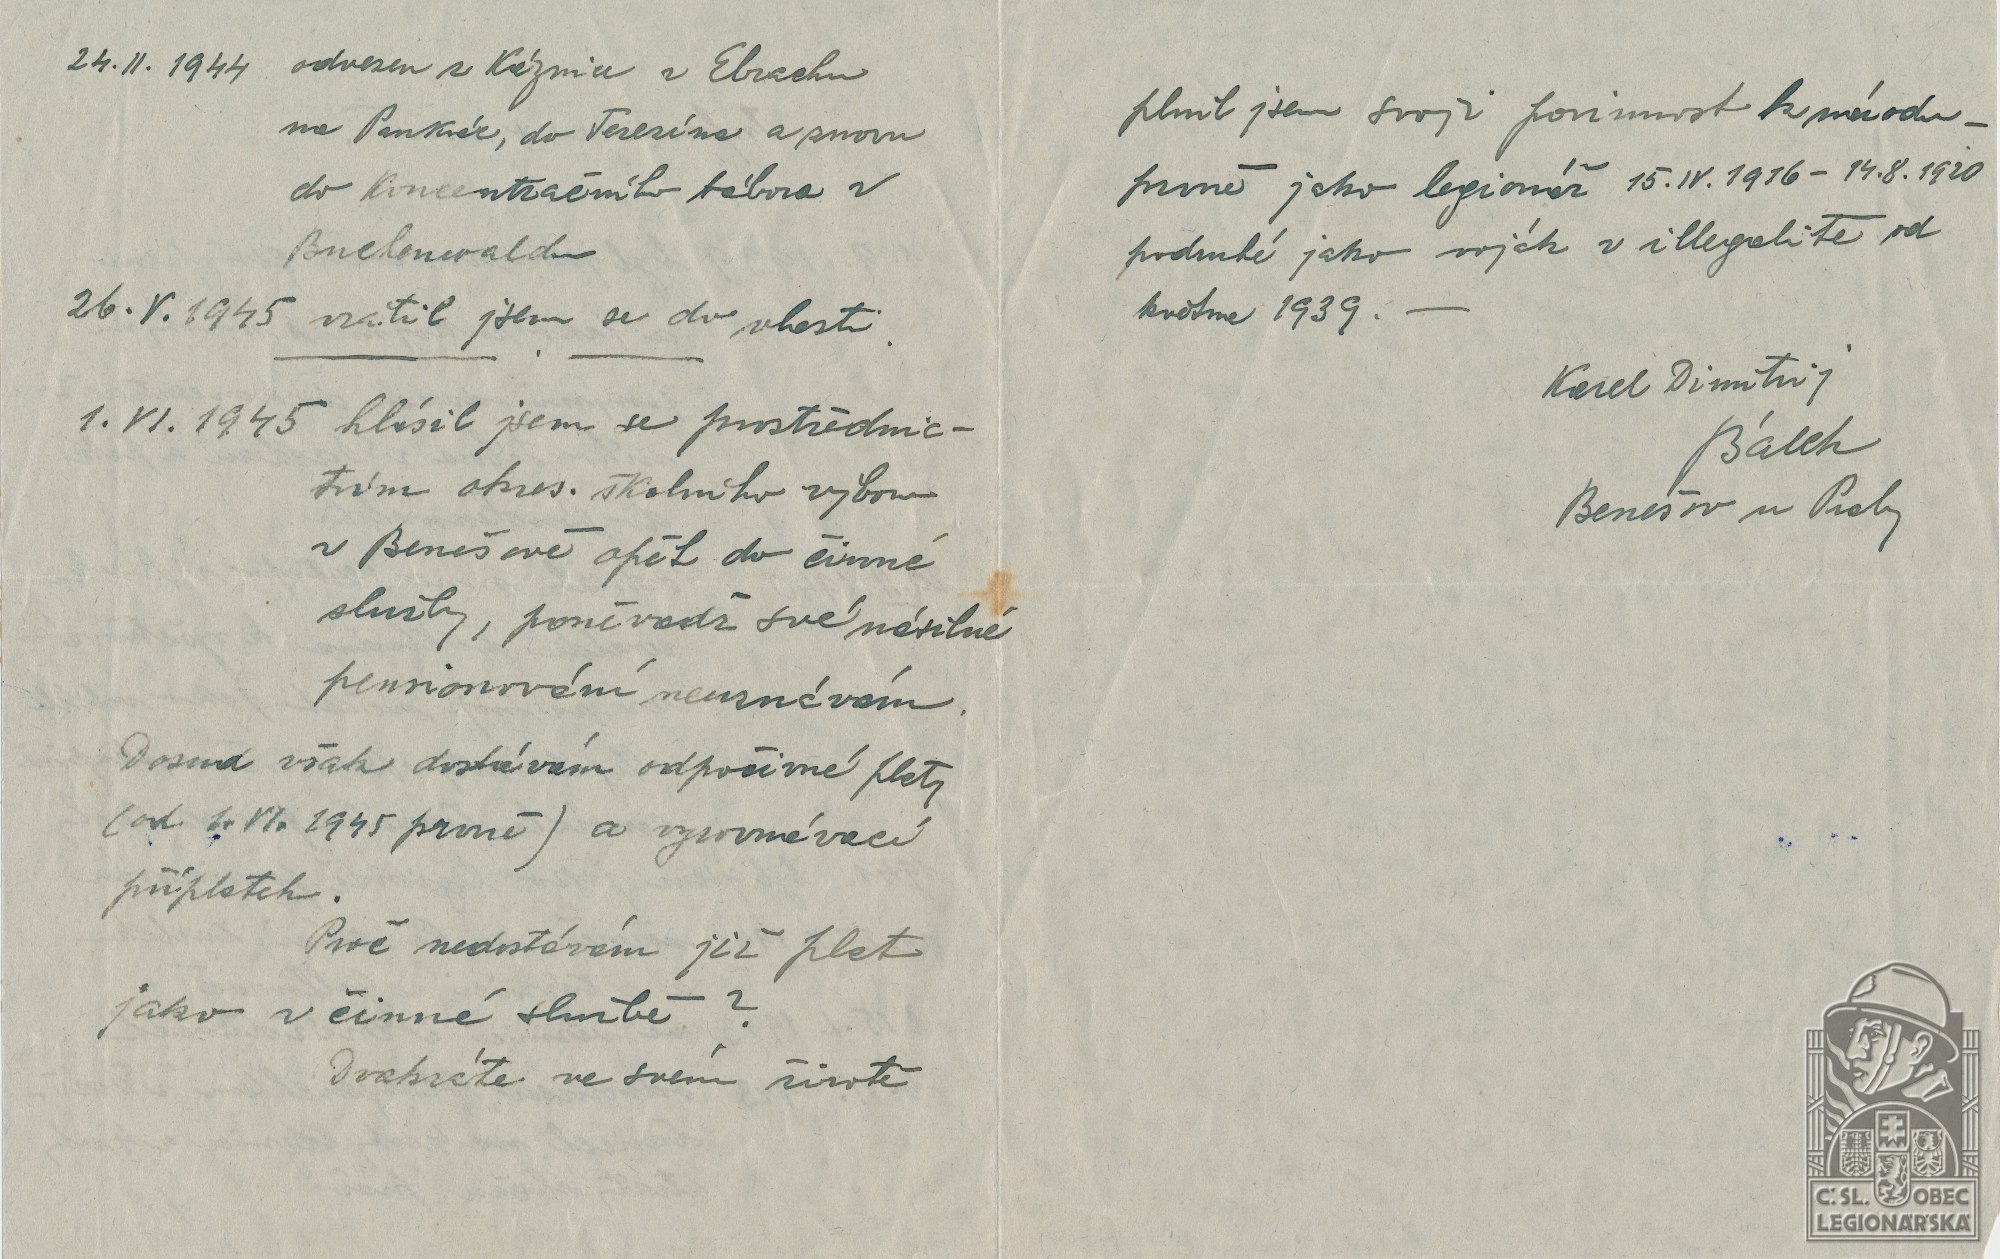 24.II. 1944 odvezen z Káznice v Ebrachu
na Pankrác, do Terezína a znovu
do Koncentračního tábora v
Buchenwaldu
26.V. 1945 vrátil jsem se do vlasti.
1. VI. 1945 hlásil jsem se prostřednic-
tvím okres. školního výboru
v Benešově opět do činné
služby, poněvadž své násilné
pensionování neuznávám.
Dosud však dostávám odpočivné platy
(od 1. VI. 1945 prvně) a vyrovnávací
příplatek.
Proč nedostávám již plat
jako v činné službě?
Dvakráte ve svém životě
plnil jsem svoji povinnost k národu –
prvně jako legionář 15.IV.1916 – 14.8.1920
podruhé jako voják v illegalitě od
května 1939. —
Karel Dimitrij
Bálek
Benešov u Prahy
Č.SL. OBEC
LEGIONÁŘSKÁ